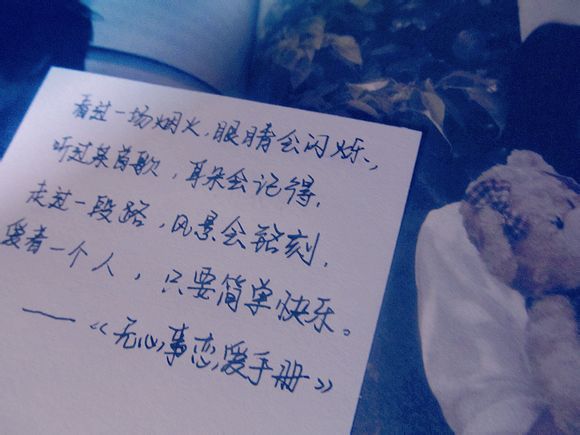 看过一场烟火，眼睛会闪烁，
听过某首歌，耳朵会记得，
走过一段路，风景会铭刻，
爱着一个人，只要简单快乐。
——《无心事恋爱手册》